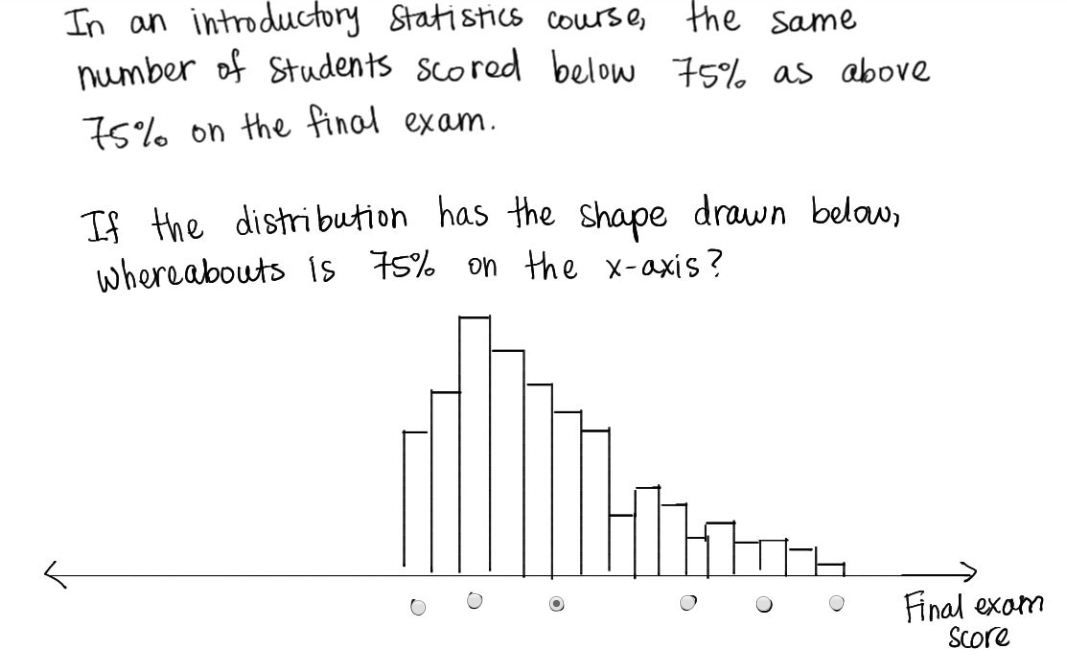 In an introductory statistics course, the same
number of students scored below 75% as above
75% on the final exam.
If the distribution has the shape drawn below,
whereabouts is 75% on the x-axis?
Final exam
score